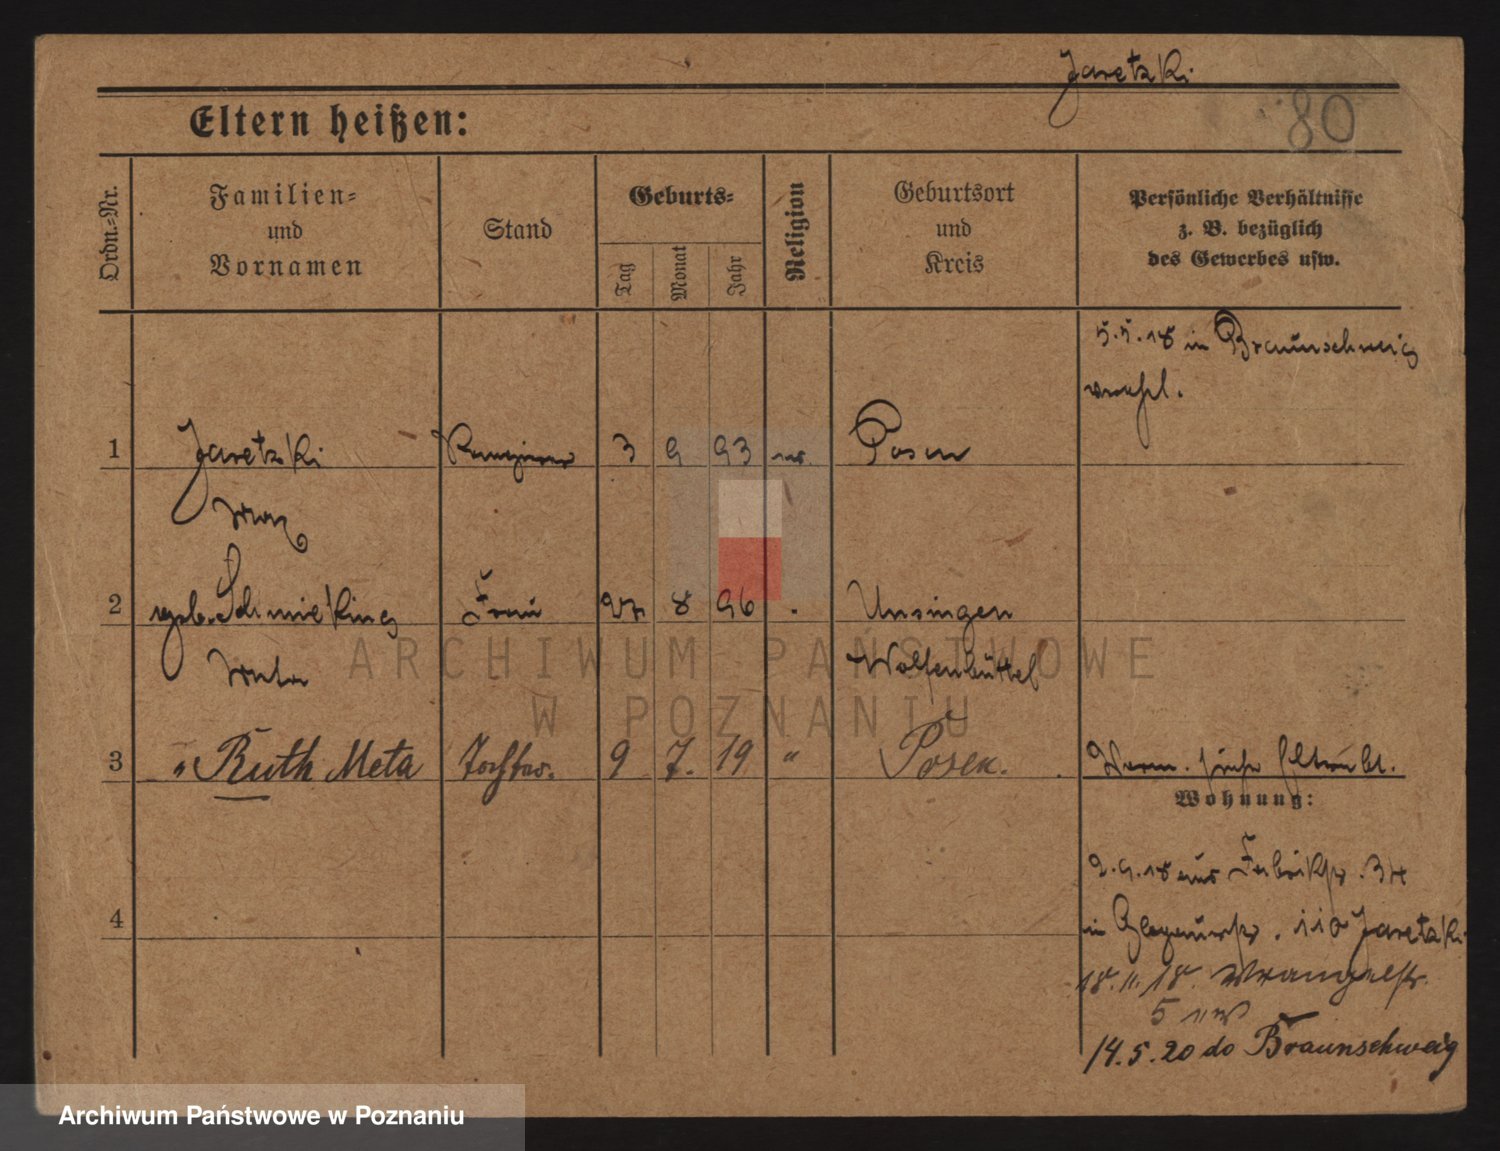 Jaretzki
80
Eltern heißen:
Ordn.-Nr.
Familien-
und
Vornamen
Stand
Geburts-
Tag
Monat
Jahr
Religion
Geburtsort
und
Kreis
Persönliche Verhältnisse
z. B. bezüglich
des Gewerbes usw.
5.5.18 in Braunschweig
verehl.
1 Jaretzki 3 9 93 Posen
Max
2 geb. Schmieking Frau 27 8 96 Unsingen
Meta Wolfenbüttel
3 " Ruth Meta Tochter. 9 7. 19 " Posen.
Wohnung:
2.9.18 aus Fabrikstr. 34
4
in Glogauerstr. 110 Jaretzki
18.11.18. Wrangelstr.
5
14.5.20 do Braunschweig
ARCHIWUM PAŃSTWOWE
W POZNANIU
Archiwum Państwowe w Poznaniu